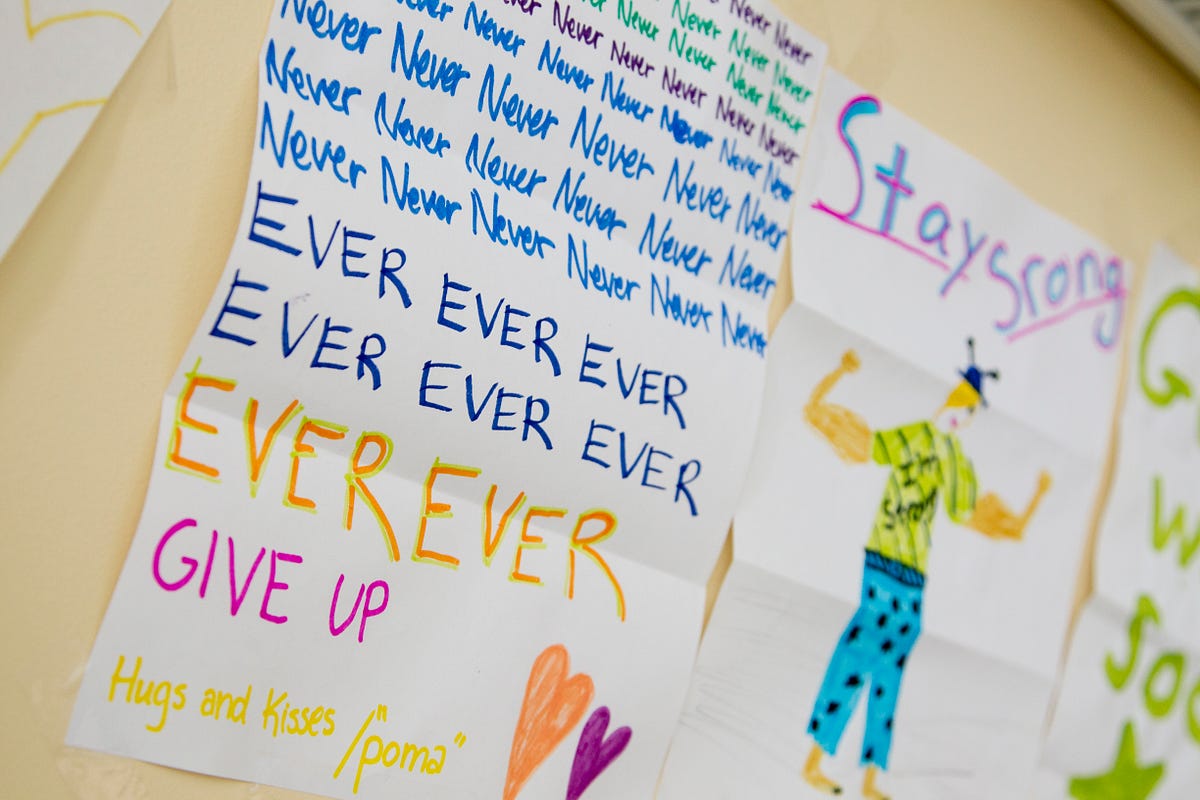 Never Never
Never Never Never
Never Never Never Never
Never Never Never Never Never
Never Never Never Never Never Never Never
Never Never Never Never Never Never
Never Never Never Never Never Never
Never Never Never Never Never Never
EVER EVER EVER
EVER EVER EVER
EVER EVER
GIVE UP
Hugs and Kisses /"poma"
Stay srong
I'm
strong
G
W
Soo